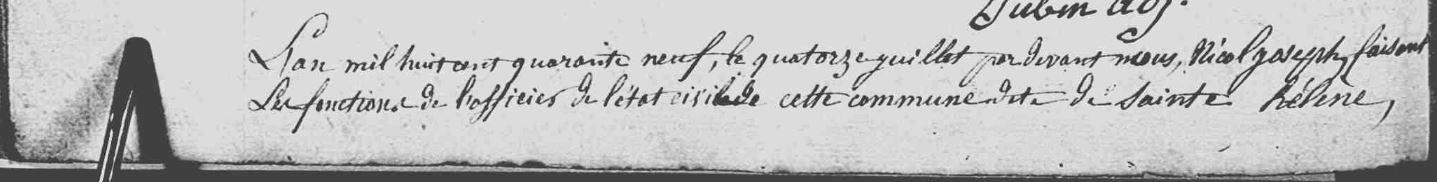 Jubin adj.
L'an mil huit cent quarante neuf, le quatorze guillet par devant nous, Nicol joseph, faisant
Les fonctions de l'officier de l'état civil de cette commune dite de Sainte hélène,